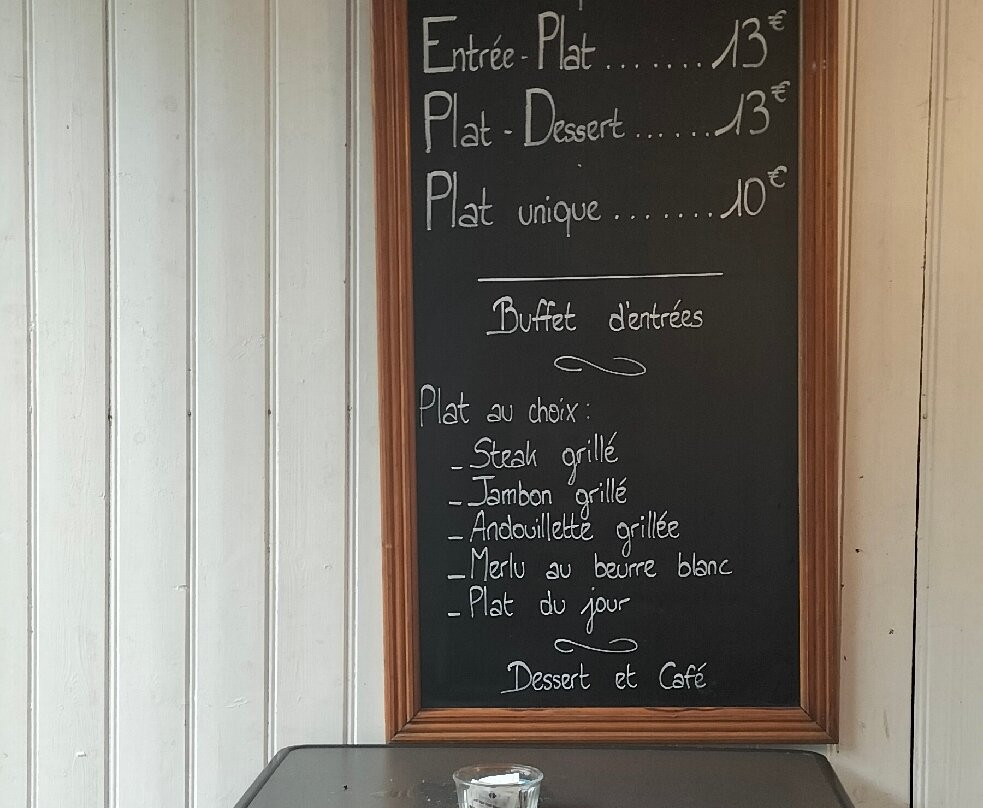 Entrée - Plat ........ 13€
Plat - Dessert ...... 13€
Plat unique ....... 10€
Buffet d'entrées
Plat au choix :
- Steak grillé
- Jambon grillé
- Andouillette grillée
- Merlu au beurre blanc
- Plat du jour
Dessert et Café